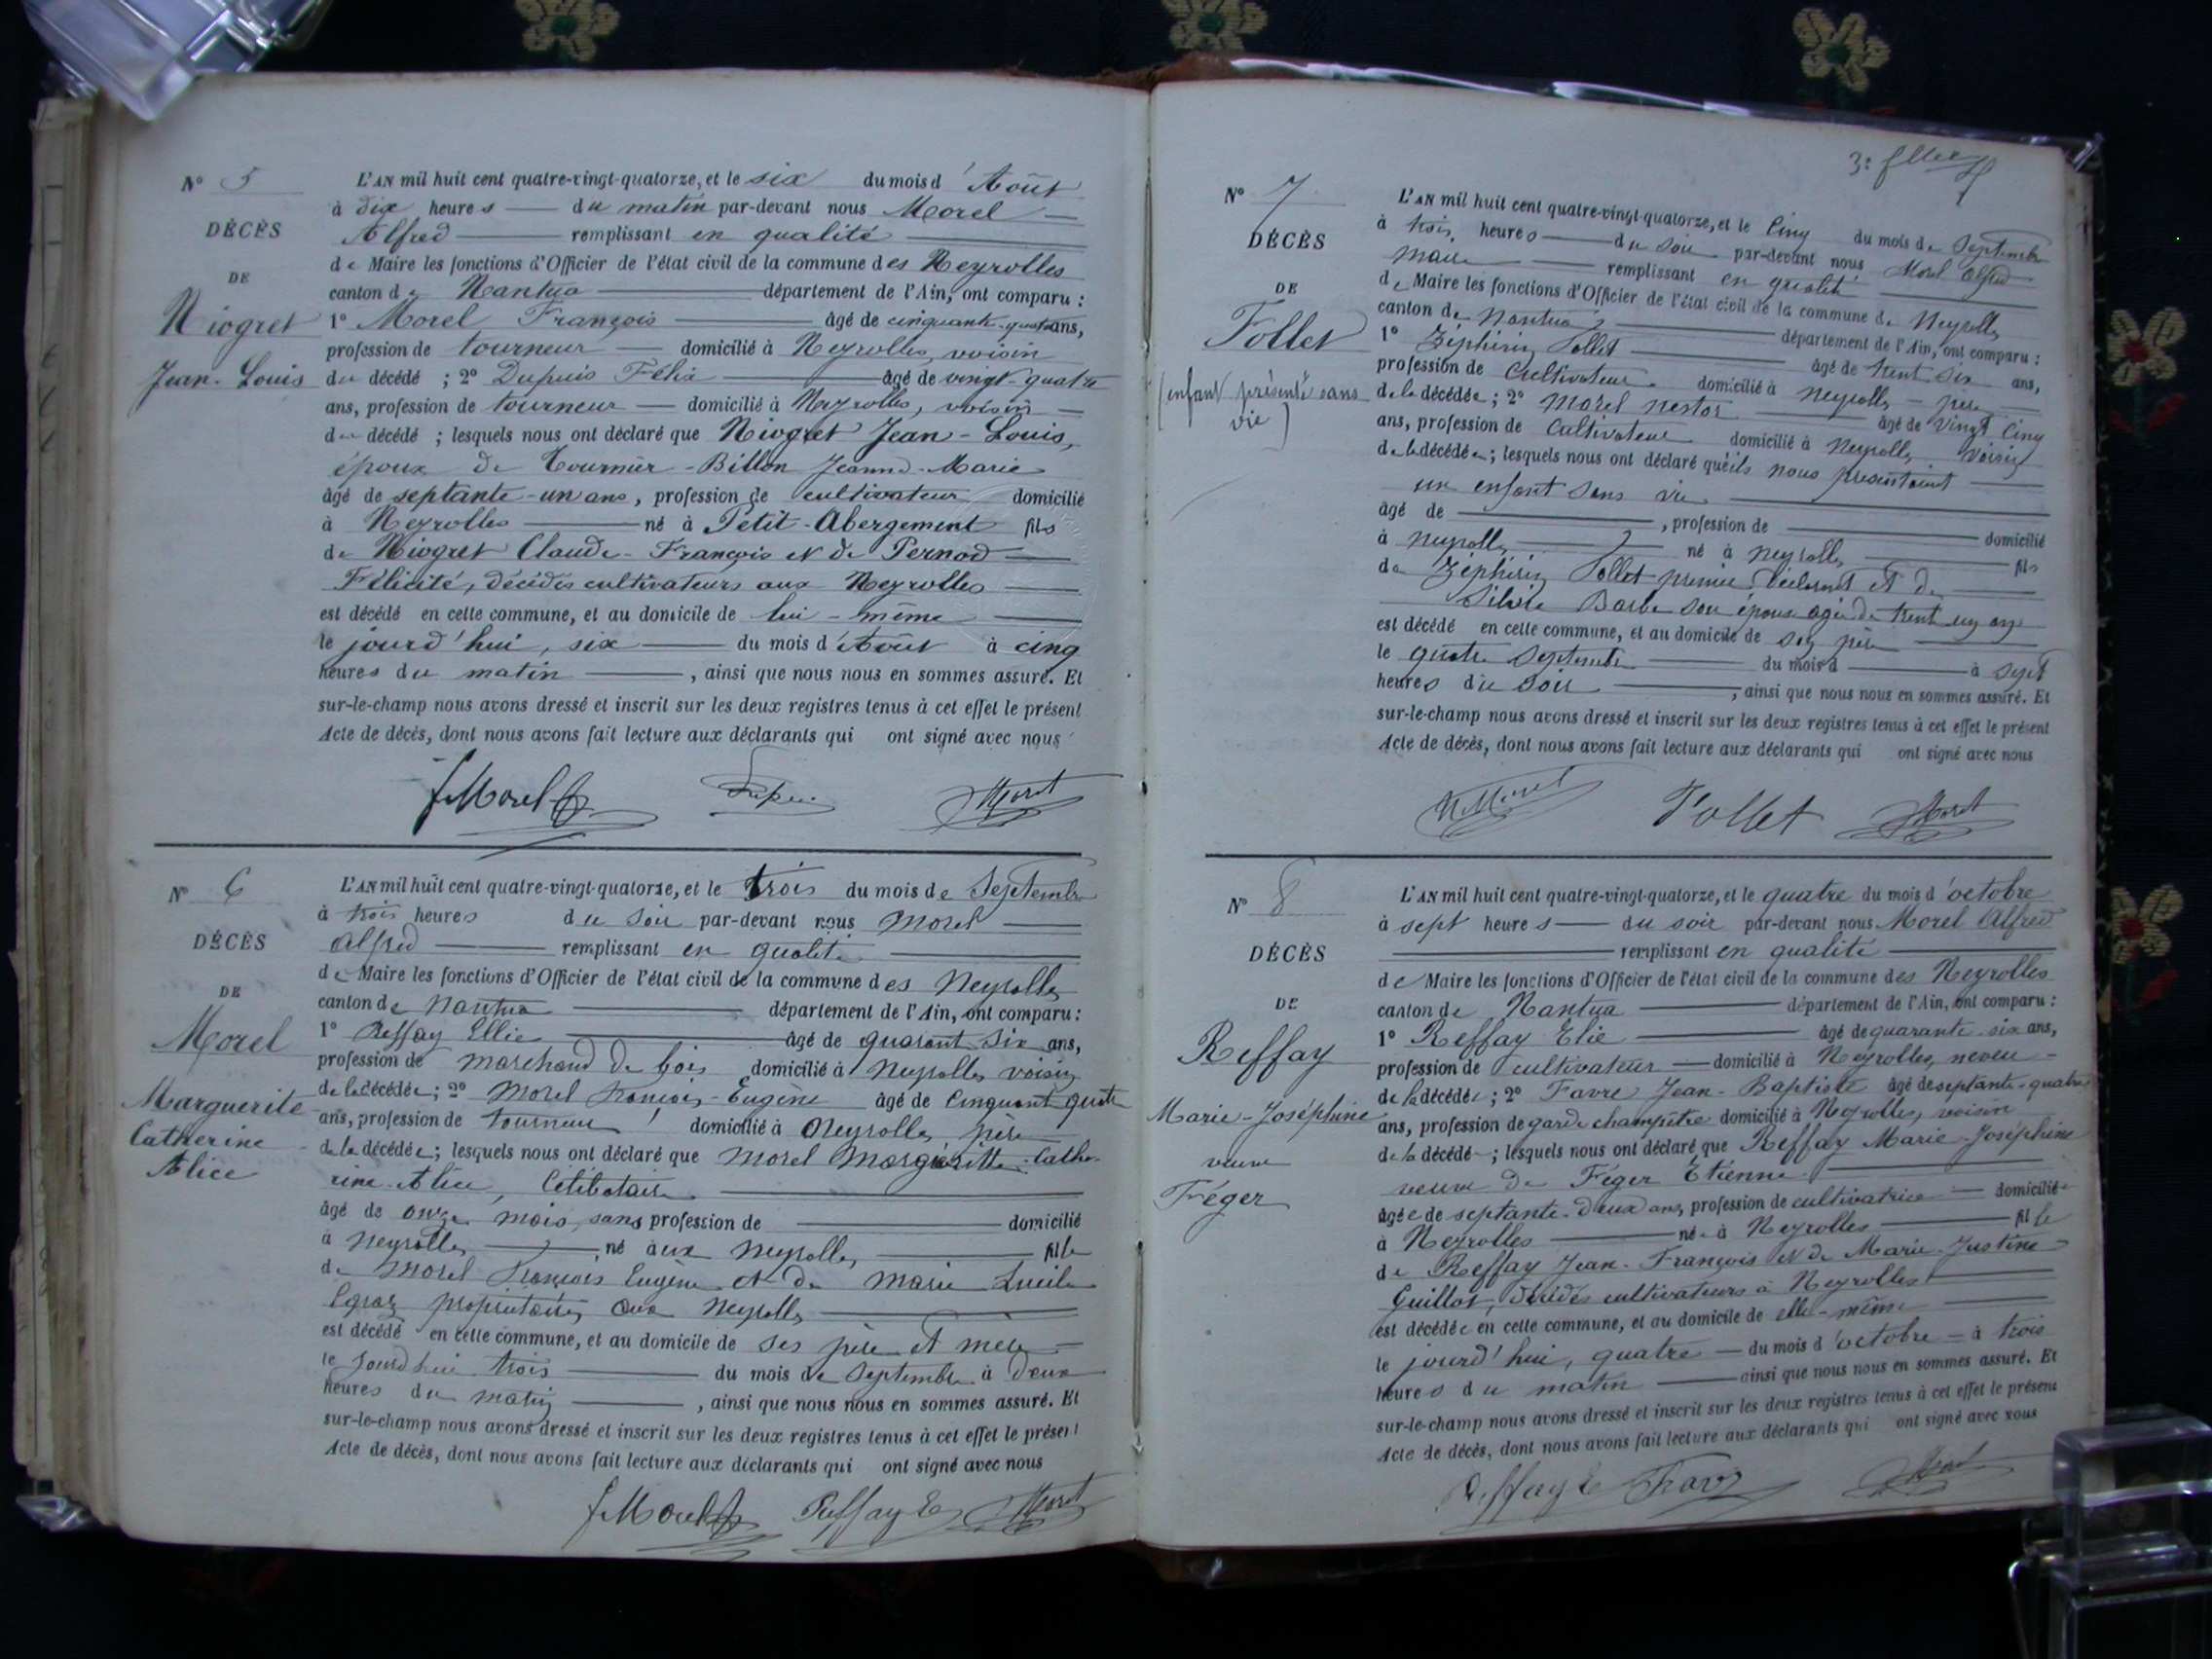 N° 5
DÉCÈS
DE
Niogret
Jean-Louis
L'AN mil huit cent quatre-vingt-quatorze, et le six du mois d'Août
à dix heures du matin par-devant nous Morel
Alfred remplissant en qualité
de Maire les fonctions d'Officier de l'état civil de la commune des Neyrolles
canton de Nantua département de l'Ain, ont comparu :
1° Morel François âgé de cinquante-quatre ans,
profession de tourneur domicilié à Neyrolles, voisin
du décédé ; 2° Dupuis Félix âgé de vingt-quatre
ans, profession de tourneur domicilié à Neyrolles, voisin
du décédé ; lesquels nous ont déclaré que Niogret Jean-Louis,
époux de Tournier-Billon Jeanne-Marie
âgé de septante-un ans, profession de cultivateur domicilié
à Neyrolles né à Petit-Abergement fils
de Niogret Claude-François et de Pernod
Félicité, décédés cultivateurs aux Neyrolles
est décédé en cette commune, et au domicile de lui-même
le jourd'hui, six du mois d'Août à cinq
heures du matin , ainsi que nous nous en sommes assuré. Et
sur-le-champ nous avons dressé et inscrit sur les deux registres tenus à cet effet le présent
Acte de décès, dont nous avons fait lecture aux déclarants qui ont signé avec nous
f Morel Dupuis Morel
N° 6
DÉCÈS
DE
Morel
Marguerite
Catherine
Alice
L'AN mil huit cent quatre-vingt-quatorze, et le trois du mois de Septembre
à trois heures du soir par-devant nous Morel
Alfred remplissant en qualité
de Maire les fonctions d'Officier de l'état civil de la commune des Neyrolles
canton de Nantua département de l'Ain, ont comparu :
1° Reffay Ellie âgé de quarant six ans,
profession de marchand de bois domicilié à Neyrolles voisin
de la décédée ; 2° Morel François-Eugène âgé de Cinquant quatre
ans, profession de tourneur domicilié à Neyrolles père
de la décédée ; lesquels nous ont déclaré que Morel Margueritte-Cathe-
rine-Alice, Célibataire
âgé de onze mois, sans profession de domicilié
à Neyrolles né aux Neyrolles fille
de Morel François Eugène et de Marie Lucile
Egraz propriétaires aux Neyrolles
est décédé en cette commune, et au domicile de ses père et mère
le Jourd'hui trois du mois de Septembre à deux
heures du matin , ainsi que nous nous en sommes assuré. Et
sur-le-champ nous avons dressé et inscrit sur les deux registres tenus à cet effet le présent
Acte de décès, dont nous avons fait lecture aux déclarants qui ont signé avec nous
f Morel Reffay E Morel
N° 7
DÉCÈS
DE
Follet
(enfant présenté sans
vie)
L'AN mil huit cent quatre-vingt-quatorze, et le Cinq du mois de Septembre
à trois heures du soir par-devant nous Morel Alfred
maire remplissant en qualité
de Maire les fonctions d'Officier de l'état civil de la commune de Neyrolles
canton de Nantua département de l'Ain, ont comparu :
1° Zéphirin Follet âgé de trent six ans,
profession de Cultivateur domicilié à Neyrolles père
de la décédée ; 2° Morel Nestor âgé de Vingt Cinq
ans, profession de Cultivateur domicilié à Neyrolles Voisin
de la décédée ; lesquels nous ont déclaré qu'ils nous présentaient
un enfant sans vie
âgé de , profession de domicilié
à Neyrolles né à Neyrolles fils
de Zéphirin Follet premier déclarant et de
Silvie Barbe son épouse agée de trent un ans
est décédé en cette commune, et au domicile de son père
le quatre Septembre du mois d à sept
heures du soir , ainsi que nous nous en sommes assuré. Et
sur-le-champ nous avons dressé et inscrit sur les deux registres tenus à cet effet le présent
Acte de décès, dont nous avons fait lecture aux déclarants qui ont signé avec nous
N Morel Follet Morel
N° 8
DÉCÈS
DE
Reffay
Marie-Joséphine
veuve
Féger
L'AN mil huit cent quatre-vingt-quatorze, et le quatre du mois d'octobre
à sept heures du soir par-devant nous Morel Alfred
remplissant en qualité
de Maire les fonctions d'Officier de l'état civil de la commune des Neyrolles
canton de Nantua département de l'Ain, ont comparu :
1° Reffay Elie âgé de quarante-six ans,
profession de cultivateur domicilié à Neyrolles, neveu
de la décédée ; 2° Favre Jean-Baptiste âgé de septante-quatre
ans, profession de garde champêtre domicilié à Neyrolles, voisin
de la décédée ; lesquels nous ont déclaré que Reffay Marie-Joséphine
veuve de Féger Étienne
âgée de septante-deux ans, profession de cultivatrice domiciliée
à Neyrolles née à Neyrolles fille
de Reffay Jean-François et de Marie-Justine
Guillot, décédés cultivateurs à Neyrolles
est décédée en cette commune, et au domicile de elle-même
le jourd'hui, quatre du mois d'octobre à trois
heures du matin ainsi que nous nous en sommes assuré. Et
sur-le-champ nous avons dressé et inscrit sur les deux registres tenus à cet effet le présent
Acte de décès, dont nous avons fait lecture aux déclarants qui ont signé avec nous
Reffay E Favre Morel